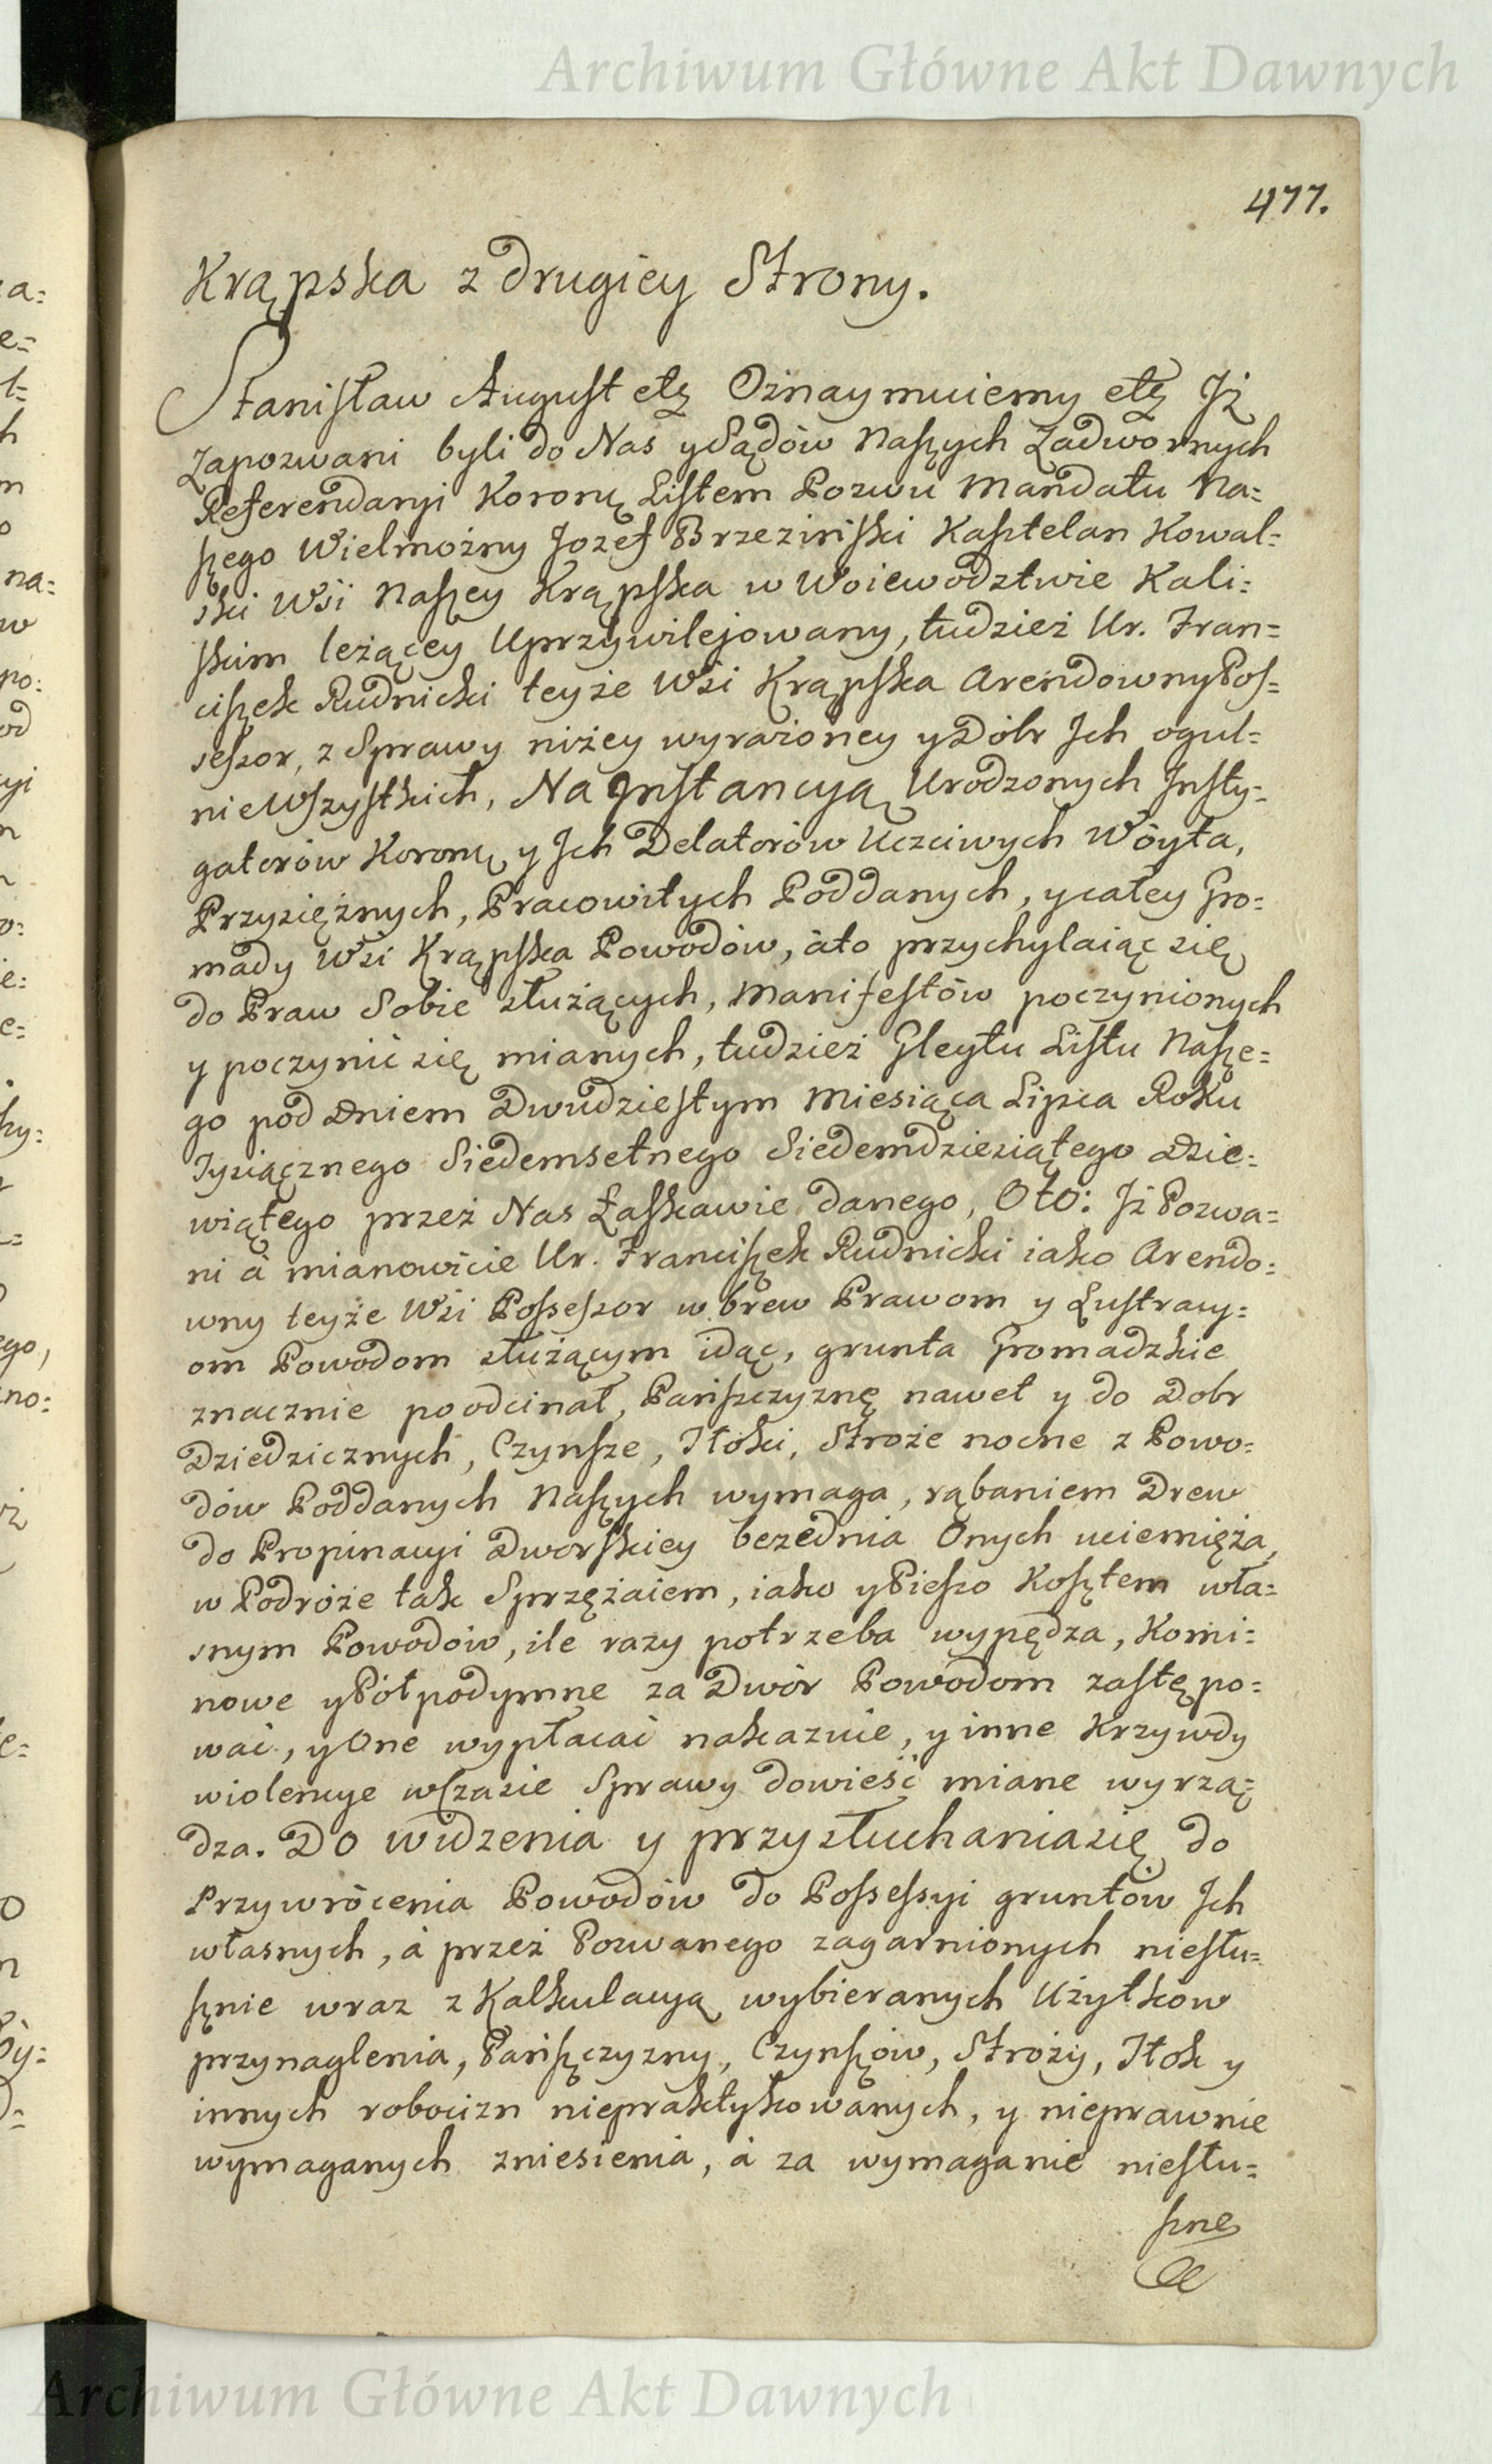 Archiwum Główne Akt Dawnych
477.
Krąpska z drugiey Strony.
Stanisław August etc Oznaymuiemy etc Iż
Zapozwani byli do Nas y Sądów Naszych Zadwornych
Referendaryi Koronney Listem Pozwu Mandatu Na=
szego Wielmożny Jozef Brzeziński Kasztelan Kowal=
ski Wsi Naszey Krąpska w Woiewodztwie Kali=
skim leżącey Uprzywilejowany, tudzież Ur. Fran=
ciszek Rudnicki teyże Wsi Krąpska Arendowny Pos=
sessor, z Sprawy niżey wyrażoney y Dóbr Ich ogul=
nie Wszystkich, Na Instancyą Urodzonych Insty=
gatorów Koronn. y Ich Delatorów Uczciwych Wóyta,
Przysiężnych, Pracowitych Poddanych, y całey Gro=
mady Wsi Krąpska Powodów, áto przychylaiąc się
do Praw Sobie służących, Manifestów poczynionych
y poczynić się mianych, tudzież Gleytu Listu Nasze=
go pod Dniem Dwudziestym Miesiąca Lipca Roku
Tysiącznego Siedemsetnego Siedemdziesiątego Dzie=
wiątego przez Nas Łaskawie danego, Oto: Iż Pozwa=
ni á mianowicie Ur. Franciszek Rudnicki iako Arendo=
wny teyże Wsi Possessor w brew Prawom y Lustracy=
om Powodom służącym idąc, grunta Gromadzkie
znacznie poodcinał, Pańszczyznę nawet y do Dobr
Dziedzicznych, Czynsze, Tłoki, Stroże nocne z Powo=
dów Poddanych Naszych wymaga, rąbaniem Drew
do Propinacyi Dworskiey bezednia Onych uciemięża,
w Podróże tak Sprzężaiem, iako y Pieszo Kosztem wła=
snym Powodów, ile razy potrzeba wypędza, Komi=
nowe y Półpodymne za Dwór Powodom zastępo=
wać, y One wypłacać nakazuie, y inne Krzywdy
wiolencye w czasie Sprawy dowieść miane wyrzą=
dza. Do widzenia y przysłuchania się do
Przywrócenia Powodów do Possessyi gruntów Ich
własnych, á przez Pozwanego zagarnionych niesłu=
sznie wraz z Kalkulacyą wybieranych Użytkow
przynaglenia, Pańszczyzny, Czynszów, Stroży, Tłok y
innych robocizn niepraktykowanych, y nieprawnie
wymaganych zniesienia, á za wymaganie niesłu=
szne
Archiwum Główne Akt Dawnych